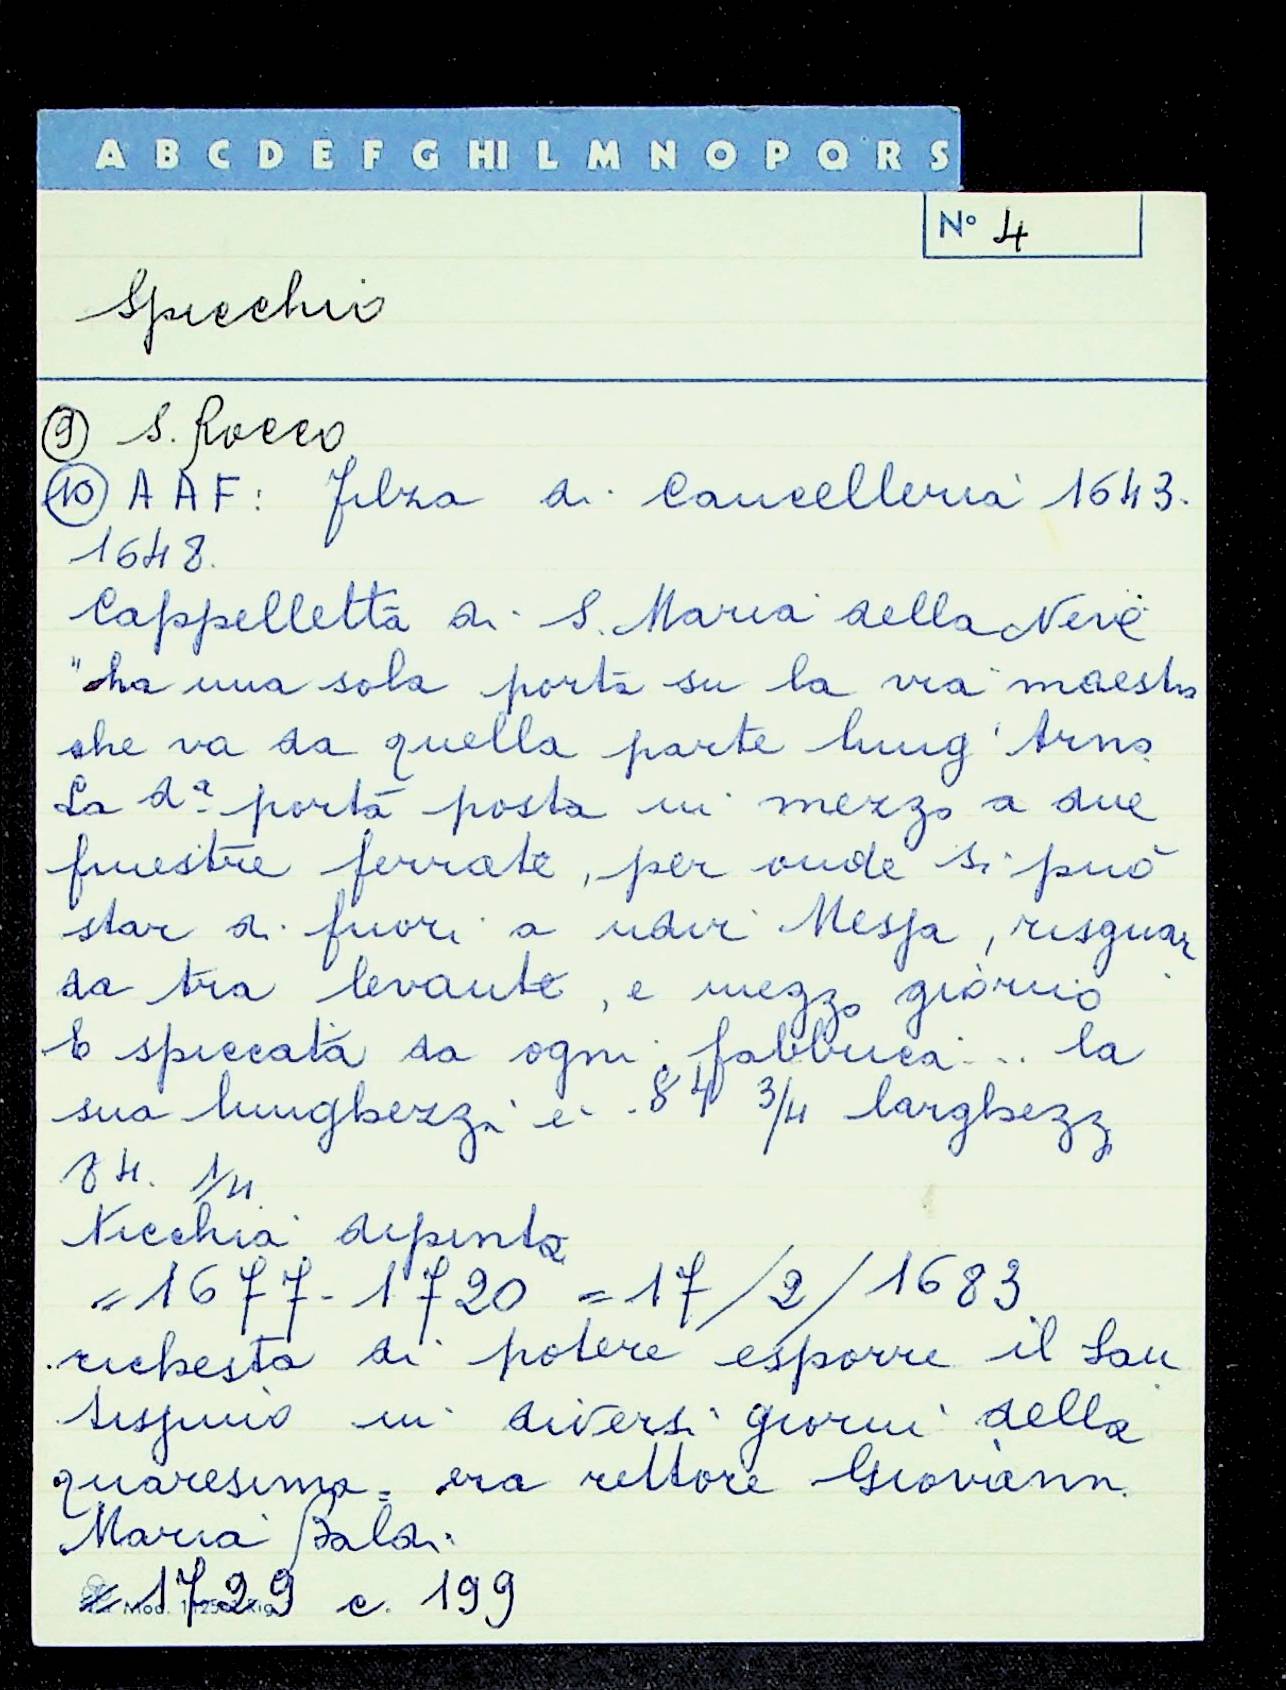 A B C D E F G HI L M N O P Q R S
N° 4
Specchio
9 S. Rocco
10 A A F: Filza di Cancelleria 1643-
1648.
Cappelletta di S. Maria della Neve
"ha una sola porta su la via maestra
che va da quella parte lung'Arno.
La d.a porta posta in mezzo a due
finestre ferrate, per onde si può
star di fuori a udir Messa, risguar
da tra levante, e mezzo giorno
E spiccata da ogni fabbrica... la
sua lunghezza è 84 3/4 larghezz
84. 1/4
Nicchia dipinta
= 1677-1720 = 17/2/1683
richesta di potere esporre il San
tissimo in diversi giorni della
quaresima = era rettore Giovann.
Maria Baldi.
= 1729 c. 199
Mod.